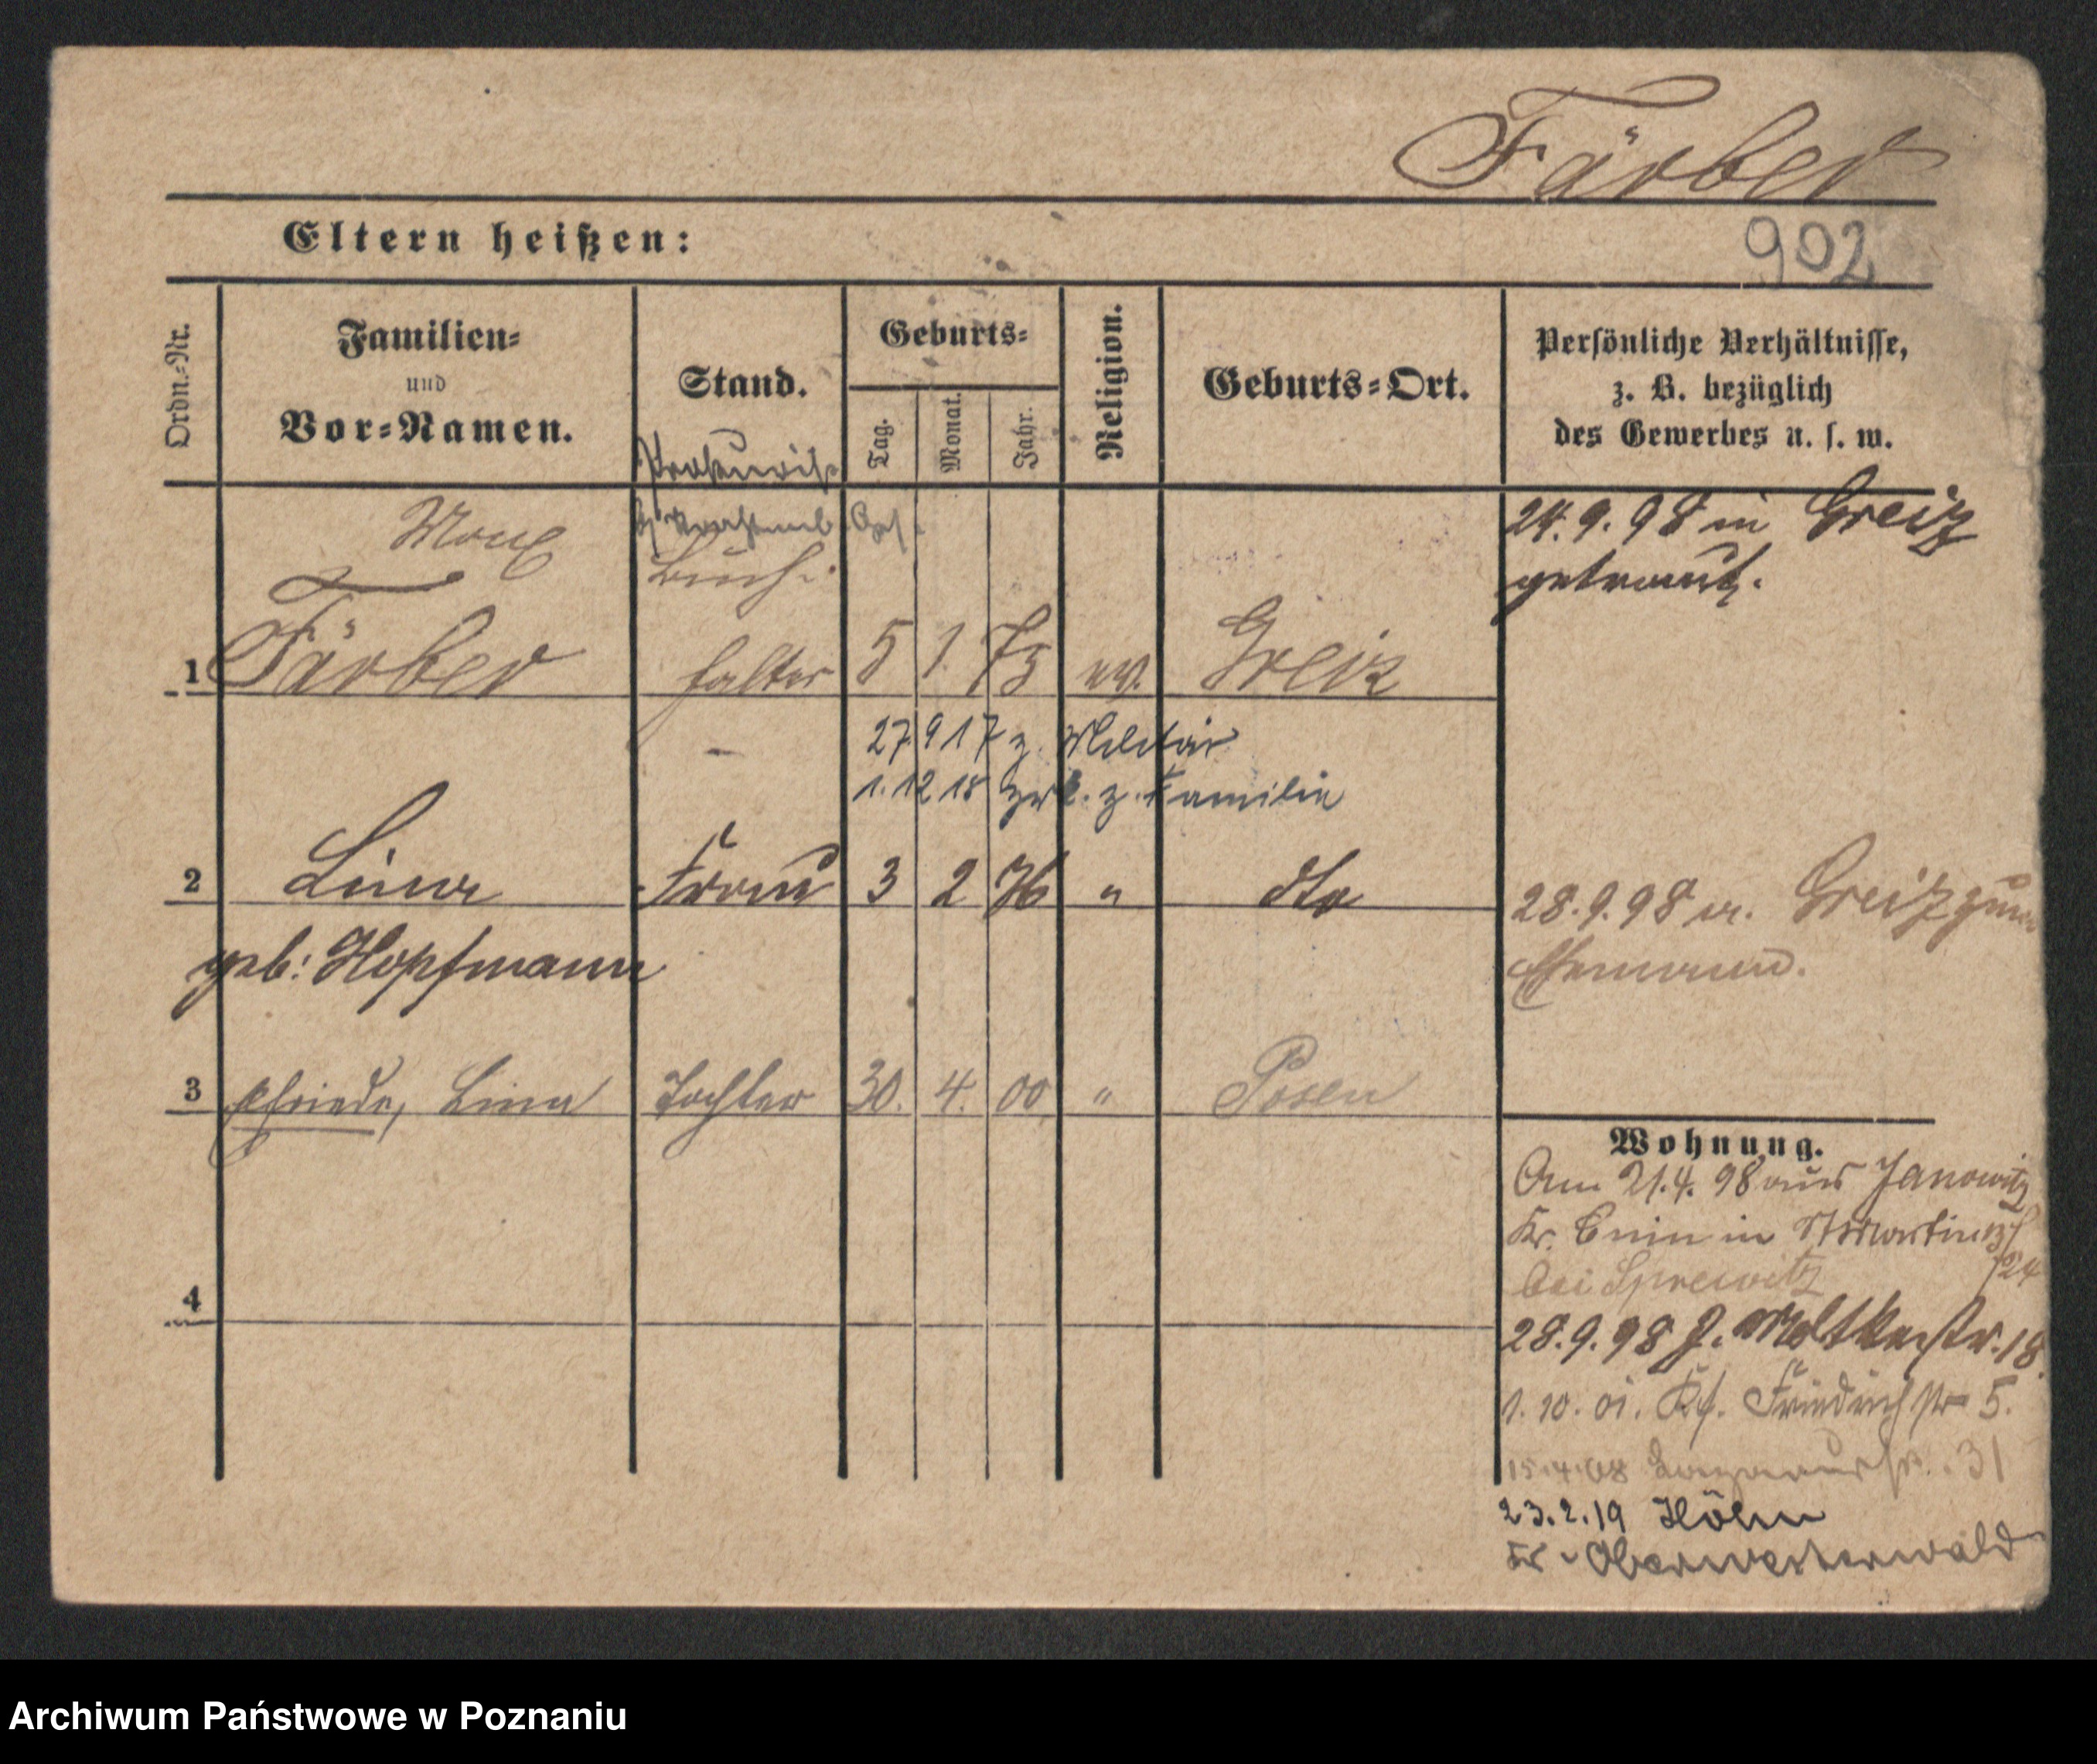 Färber
Eltern heißen:
902
Ordn.-Nr.
Familien-
und
Vor-Namen.
Stand.
Geburts-
Tag.
Monat.
Jahr.
Religion.
Geburts-Ort.
Persönliche Verhältnisse,
z. B. bezüglich
des Gewerbes u. s. w.
Prokurist
Max
Buch-
1 Färber halter 5 1. 73 ev. Greiz
24.9.98 in Greiz
getraut.
27 9 17 z. Militär
1. 12 18 zrk. z. Familie
2 Lina Frau 3 2 76 " dto
geb: Hopfmann
28.9.98 v. Greiz zum
Ehemann.
3 Elfriede, Lina Tochter 30. 4. 00 " Posen
4
Wohnung.
Am 21.4.98 aus Janowitz
Kr. Znin in St Martinstr
bei 24
28.9.98 J. Moltkestr. 18.
1.10.01. Friedrichstr 5.
15.4.08 31
23.2.19 Höhn
Kr. Oberwesterwald
Archiwum Państwowe w Poznaniu